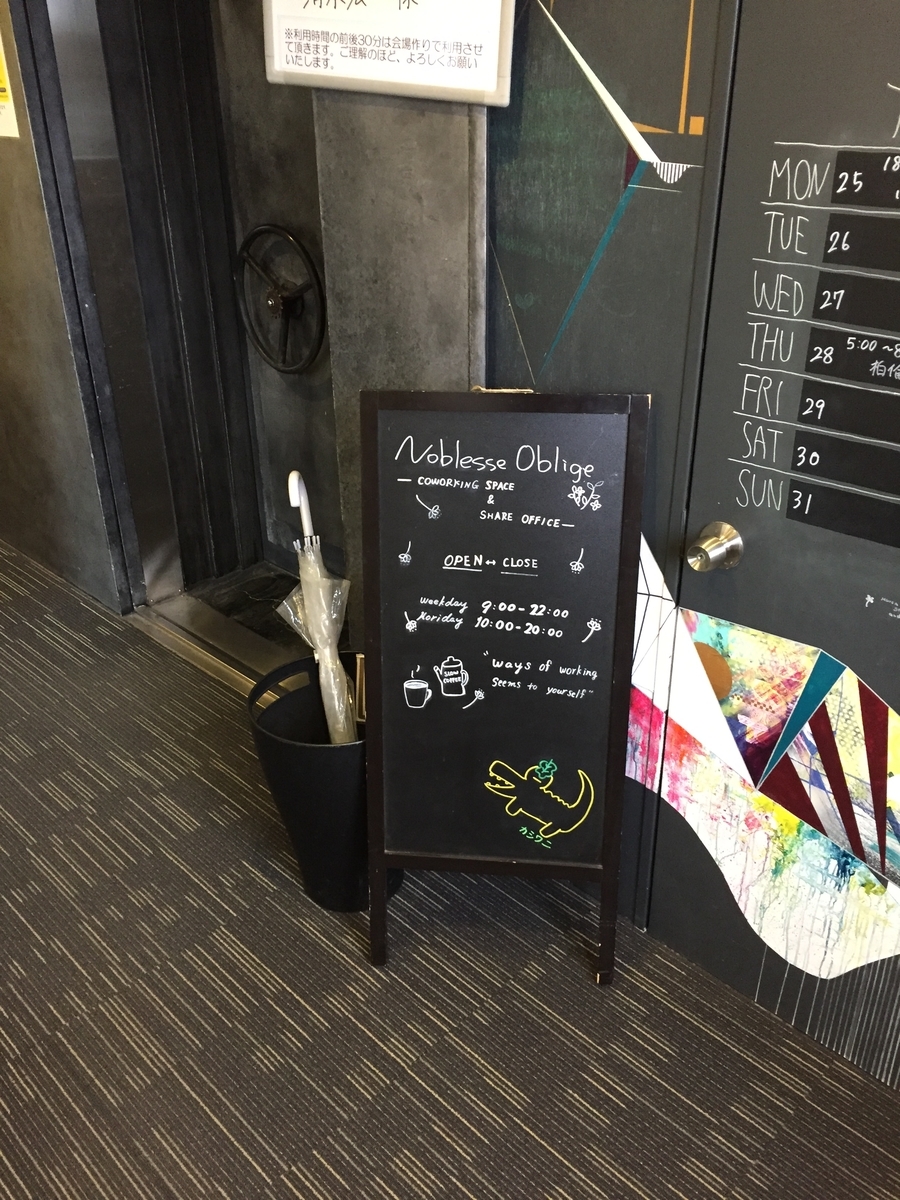 ※利用時間の前後30分は会場作りで利用させ
て頂きます。ご理解のほど、よろしくお願い
いたします。
MON 25 18
TUE 26
WED 27
THU 28 5:00~8
FRI 29
SAT 30
SUN 31
Noblesse Oblige
— COWORKING SPACE
&
SHARE OFFICE —
OPEN ↔ CLOSE
weekday 9:00-22:00
Horiday 10:00-20:00
"ways of working
seems to yourself"
SLOW
COFFEE
カシワニ